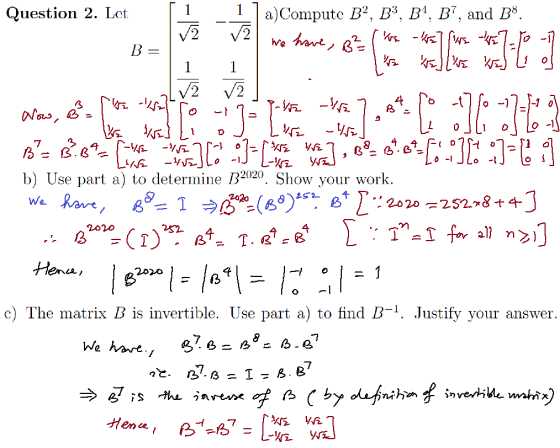 Question 2. Let B = [1/√2 -1/√2; 1/√2 1/√2] a) Compute B², B³, B⁴, B⁷, and B⁸.
We have, B² = [1/√2 -1/√2; 1/√2 1/√2][1/√2 -1/√2; 1/√2 1/√2] = [0 -1; 1 0]
Now, B³ = [1/√2 -1/√2; 1/√2 1/√2][0 -1; 1 0] = [-1/√2 -1/√2; 1/√2 -1/√2], B⁴ = [0 -1; 1 0][0 -1; 1 0] = [-1 0; 0 -1]
B⁷ = B³.B⁴ = [-1/√2 -1/√2; 1/√2 -1/√2][-1 0; 0 -1] = [1/√2 1/√2; -1/√2 1/√2], B⁸ = B⁴.B⁴ = [-1 0; 0 -1][-1 0; 0 -1] = [1 0; 0 1]
b) Use part a) to determine B²⁰²⁰. Show your work.
We have, B⁸ = I ⇒ B²⁰²⁰ = (B⁸)²⁵².B⁴ [∵ 2020 = 252×8+4]
∴ B²⁰²⁰ = (I)²⁵².B⁴ = I.B⁴ = B⁴ [∵ Iⁿ = I for all n≥1]
Hence, |B²⁰²⁰| = |B⁴| = |-1 0; 0 -1| = 1
c) The matrix B is invertible. Use part a) to find B⁻¹. Justify your answer.
We have, B⁷.B = B⁸ = B.B⁷
i.e. B⁷.B = I = B.B⁷
⇒ B⁷ is the inverse of B (by definition of invertible matrix)
Hence, B⁻¹ = B⁷ = [1/√2 1/√2; -1/√2 1/√2]